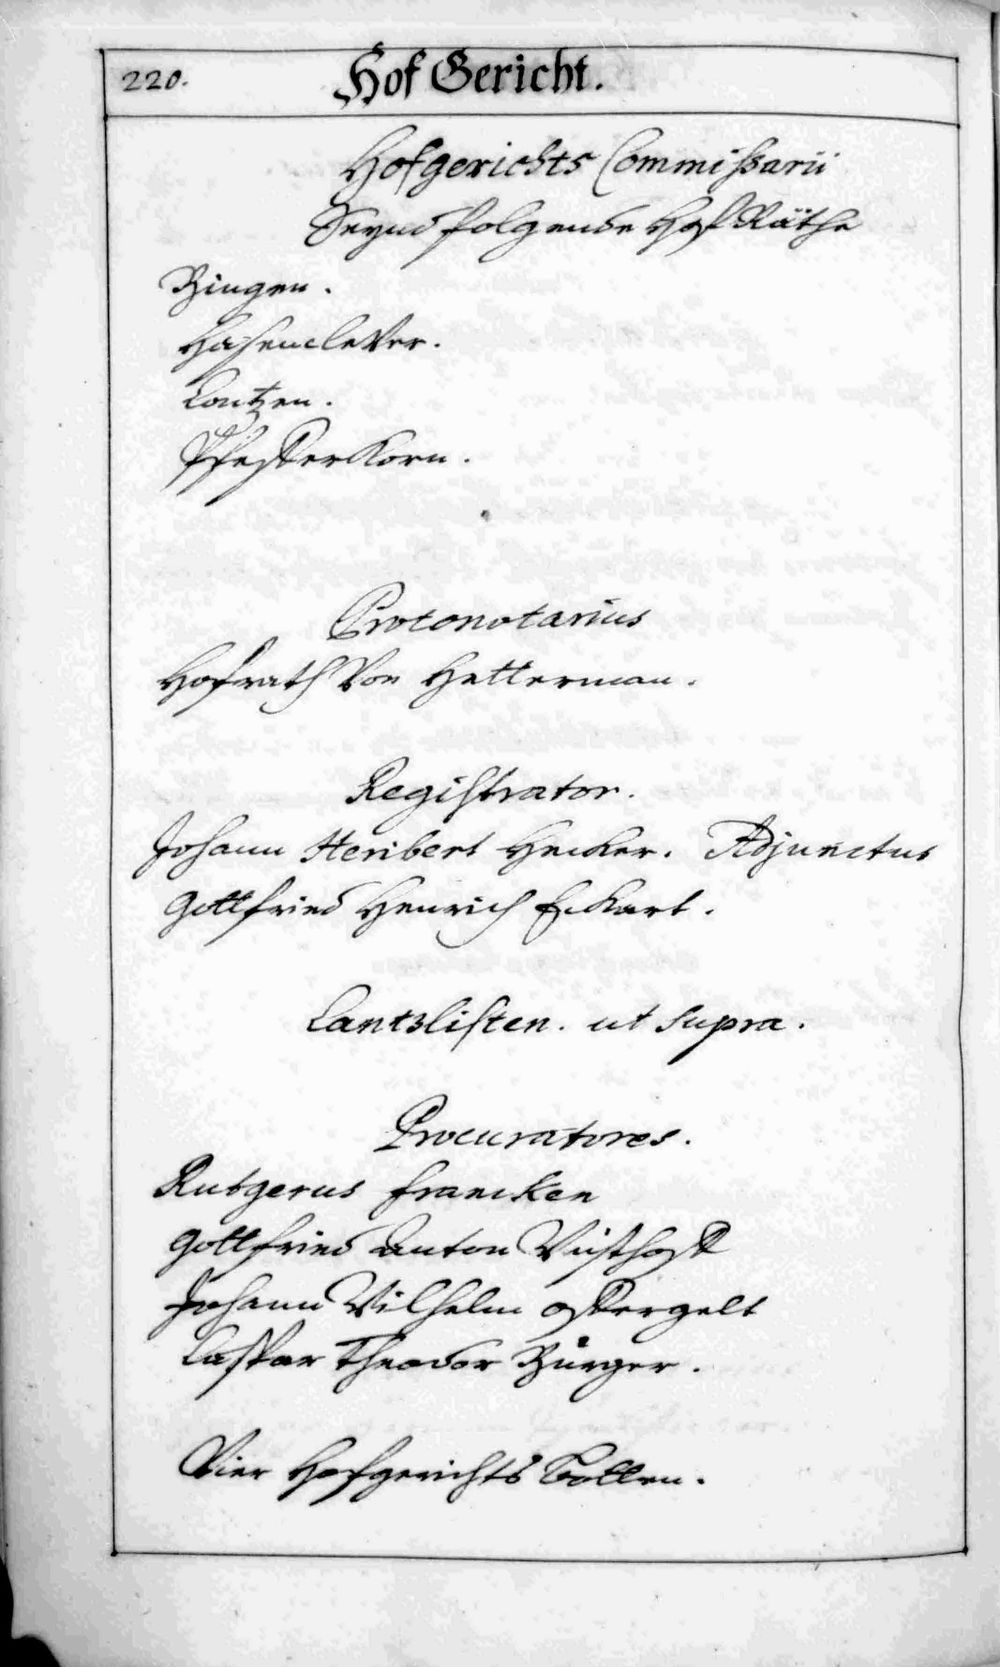 220.
Hof Gericht.
Hofgerichts Commissarii
Seynd folgende Hof Räthe
Bingen.
Hasenclever.
Contzen.
Pfefferkorn.
Protonotarius
Hofrath Von Hetterman.
Registrator.
Johann Heribert Hecker. Adjunctus
Gottfried Henrich Eckart.
Cantzlisten. ut supra.
Procuratores.
Rutgerus francken
Gottfried Anton
Johann Wilhelm Ostergelt
Caspar Theodor Bürger.
Vier Hofgerichts Botten.